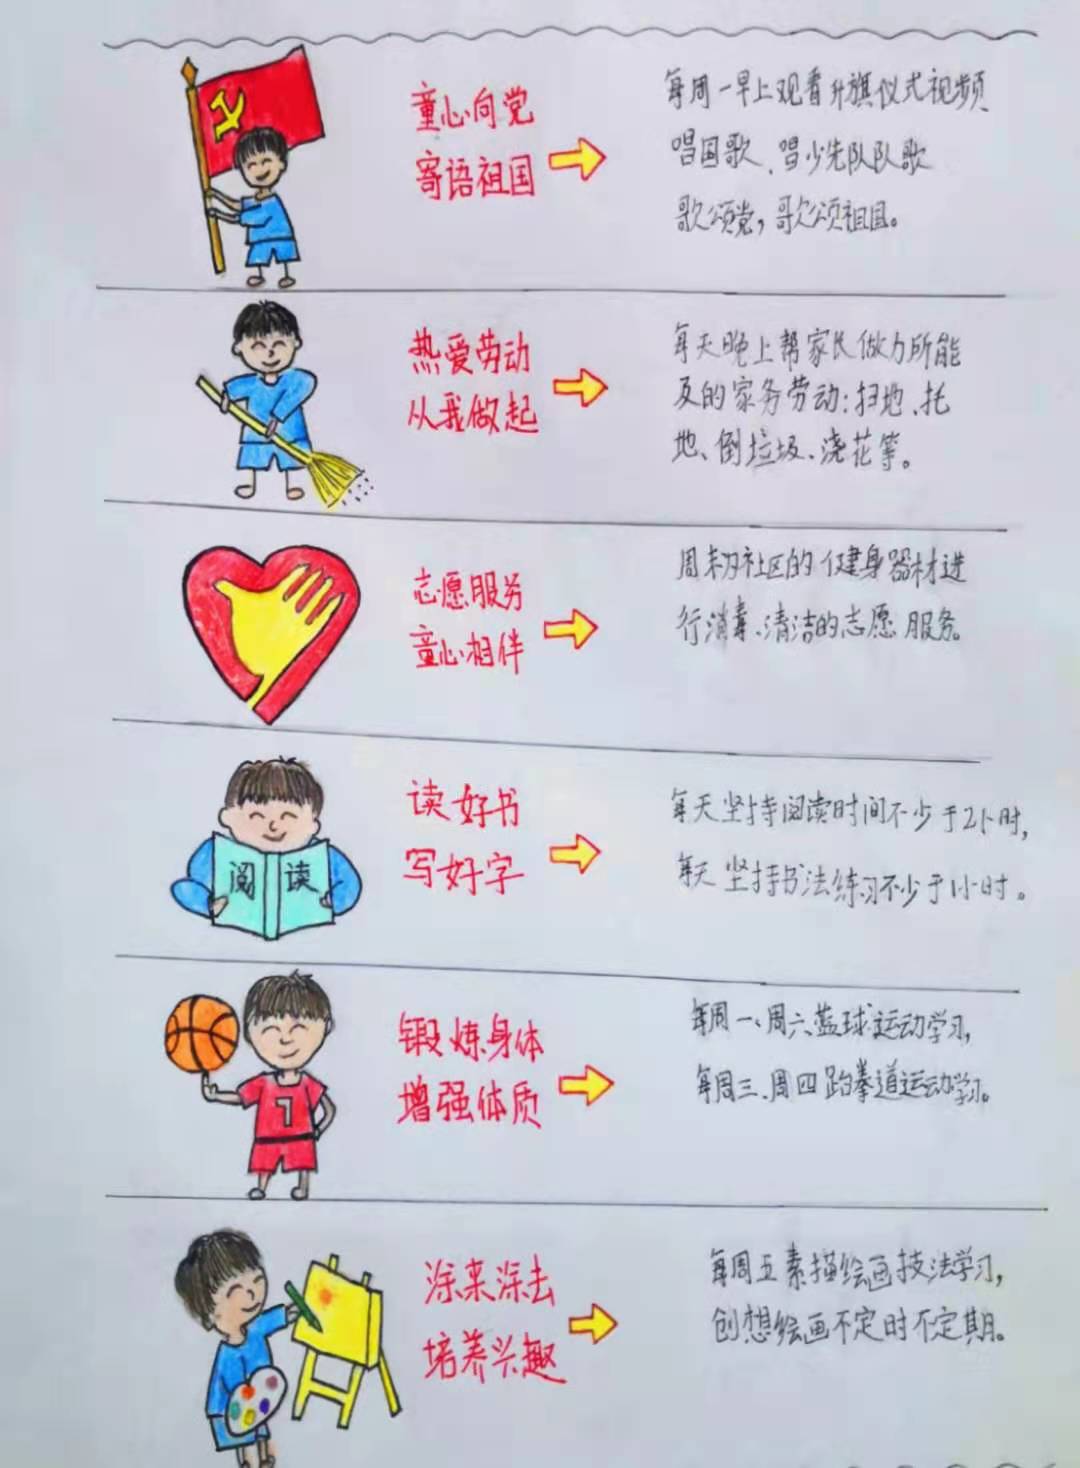 童心向党
寄语祖国
每周一早上观看升旗仪式视频
唱国歌、唱少先队队歌
歌颂党，歌颂祖国。
热爱劳动
从我做起
每天晚上帮家长做力所能
及的家务劳动：扫地、拖
地、倒垃圾、浇花等。
志愿服务
童心相伴
周末为社区的健身器材进
行消毒、清洁的志愿服务。
读好书
写好字
阅读
每天坚持阅读时间不少于2小时，
每天坚持书法练习不少于1小时。
锻炼身体
增强体质
7
每周一、周六篮球运动学习，
每周三、周四跆拳道运动学习。
涂来涂去
培养兴趣
每周五素描绘画技法学习，
创想绘画不定时不定期。